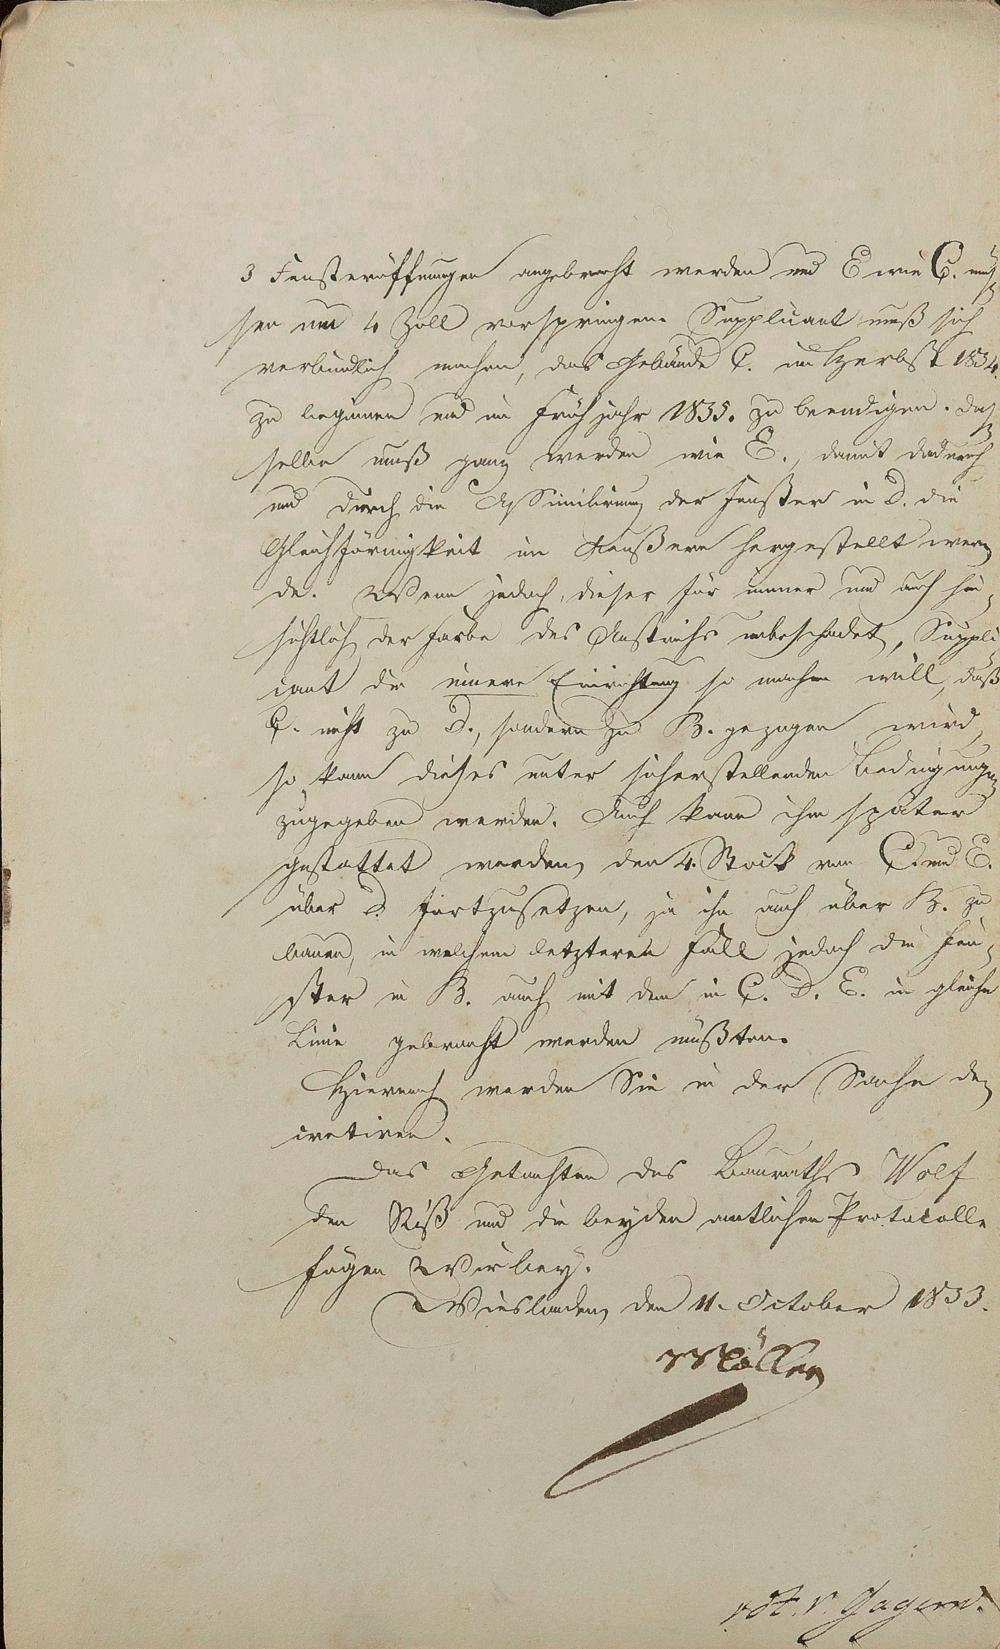 3 Fensteröffnungen angebracht werden und E wie C. müs
sen um 4 Zoll vorspringen. Supplicant muß sich
verbindlich machen, das Gebäude C. im Herbst 1834.
zu beginnen und im Frühjahr 1835. zu beendigen. Das
selbe muß ganz werden wie E., damit dadurch
und durch die Assimilirung der Fenster in D. die
Gleichförmigkeit im Äußern hergestellt wer
de. Wenn jedoch, dieser für immer und auch hin,
sichtlich der Farbe des Anstrichs unbeschadet, Suppli
cant die innere Einrichtung so machen will, daß
C. nicht zu D., sondern zu B. gezogen wird,
so kann dieses unter sicherstellenden Bedingungen
zugegeben werden. Auch kann ihm später
gestattet werden, den 4. Stock von C. und E.
über D. fortzusetzen, ja ihn auch über B. zu
bauen, in welchem letzteren Fall jedoch die Fen,
ster in B. auch mit den in C. D. E. in gleiche
Linie gebracht werden müßten.
Hiernach werden Sie in der Sache de
cretiren.
Das Gutachten des Bauraths Wolf
den Riß und die beyden amtlichen Protocolle
fügen Wir bey.
Wiesbaden, den 11. October 1833.
Möller
vdt. v. Gagern.